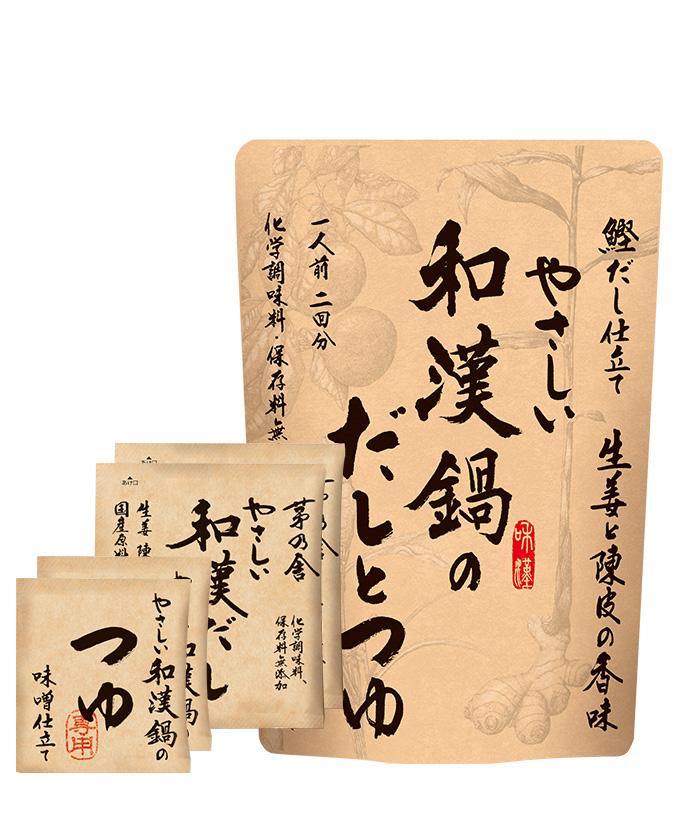 鰹だし仕立て 生姜と陳皮の香味
やさしい
和漢鍋の
だしとつゆ
一人前 二回分
化学調味料・保存料無
茅乃舎
やさしい
和漢だし
化学調味料、
保存料無添加
生姜 陳
国産原料
あけ口
あけ口
やさしい和漢鍋の
つゆ
味噌仕立て
専用